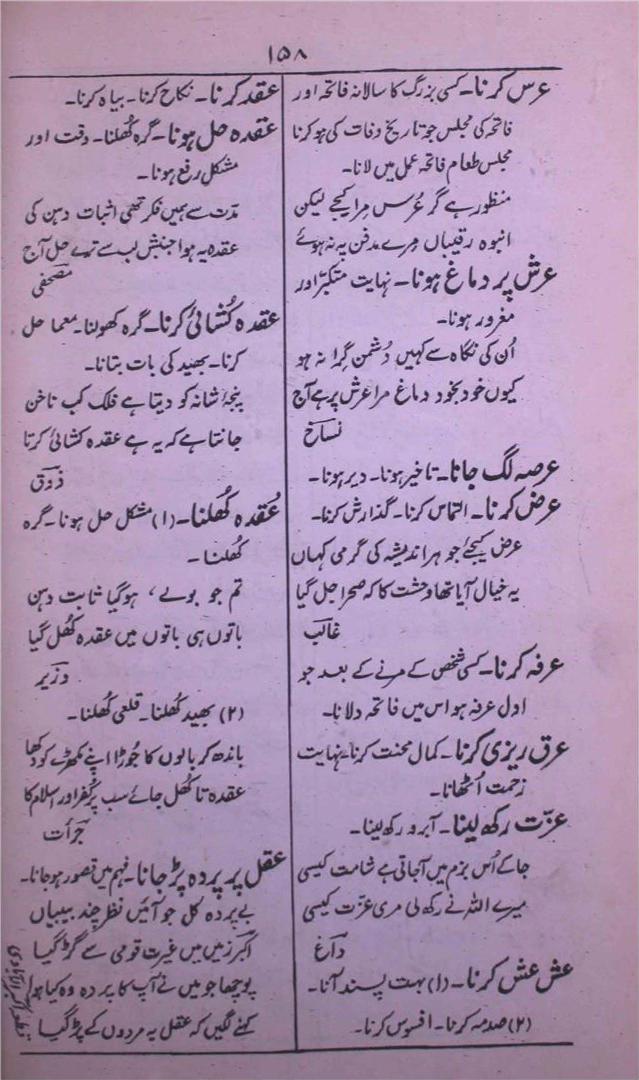 ۱۵۸
عرس کرنا۔ کسی بزرگ کا سالانہ فاتحہ اور
فاتحہ کی مجلس جو تاریخ وفات کی ہو کرنا
مجلس طعام فاتحہ عمل میں لانا۔
منظور ہے گر عُرس مرا کیجے لیکن
انبوہ رقیباں مرے مدفن پہ نہ ہوئے
عرش پر دماغ ہونا۔ نہایت متکبّر اور
مغرور ہونا۔
اُن کی نگاہ سے کہیں دُشمن گِرا نہ ہو
کیوں خود بخود دماغ مرا عرش پر ہے آج
نساخ
عرصہ لگ جانا۔ تاخیر ہونا۔ دیر ہونا۔
عرض کرنا۔ التماس کرنا۔ گذارش کرنا۔
عرض کیجئے جوہر اندیشہ کی گرمی کہاں
یہ خیال آیا تھا وحشت کا کہ صحرا جل گیا
غالب
عرفہ کرنا۔ کسی شخص کے مرنے کے بعد جو
اول عرفہ ہو اس میں فاتحہ دلانا۔
عرق ریزی کرنا۔ کمال محنت کرنا۔ نہایت
زحمت اُٹھانا۔
عزّت رکھ لینا۔ آبرو رکھ لینا۔
جا کے اُس بزم میں آ جاتی ہے شامت کیسی
میرے اللہ نے رکھ لی مری عزّت کیسی
داغ
عش عش کرنا۔ (۱) بہت پسند آنا۔
(۲) صدمہ کرنا۔ افسوس کرنا۔
عقد کرنا۔ نکاح کرنا۔ بیاہ کرنا۔
عقدہ حل ہونا۔ گرہ کُھلنا۔ دقت اور
مشکل رفع ہونا۔
مدّت سے ہمیں فکر تھی اثبات دہن کی
عقدہ یہ ہوا جنبش لب سے ترے حل آج
مصحفی
عقدہ کُشائی کرنا۔ گرہ کھولنا۔ معما حل
کرنا۔ بھید کی بات بتانا۔
پنجۂ شانہ کو دیتا ہے فلک کب ناخن
جانتا ہے کہ یہ ہے عقدہ کشائی کرتا
ذوق
عُقدہ کُھلنا۔ (۱) مشکل حل ہونا۔ گرہ
کُھلنا۔
تم جو بولے، ہوگیا ثابت دہن
باتوں ہی باتوں میں عقدہ کُھل گیا
وزیر
(۲) بھید کُھلنا۔ قلعی کُھلنا۔
باندھ کر بالوں کا جُوڑا اپنے مُکھڑے کو دکھا
عقدہ تا کُھل جائے سب پر کُفر اور اسلام کا
جرأت
عقل پر پردہ پڑ جانا۔ فہم میں قصور ہو جانا۔
بے پردہ کل جو آئیں نظر چند بیبیاں
اکبر زمیں میں غیرت قومی سے گڑ گیا
پوچھا جو میں نے آپ کا پردہ وہ کیا ہوا
کہنے لگیں کہ عقل پہ مردوں کے پڑ گیا